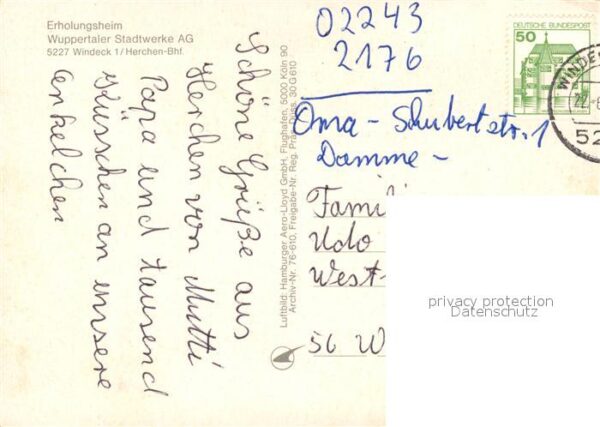 Erholungsheim
Wuppertaler Stadtwerke AG
5227 Windeck 1/Herchen-Bhf.
Schöne Grüße aus
Herchen von Mutti
Papa und tausend
Küsschen an unsere
Enkelchen
Luftbild: Hamburger Aero-Lloyd GmbH, Flughafen, 5000 Köln 90
Archiv-Nr. 76-610, Freigabe-Nr. Reg. Präs. Düss. 30 G 610
02243
2176
Oma - Schubertstr. 1
Damme -
Famili
Udo
West-
56 W
DEUTSCHE BUNDESPOST
50
WINDE
22.
52
privacy protection
Datenschutz